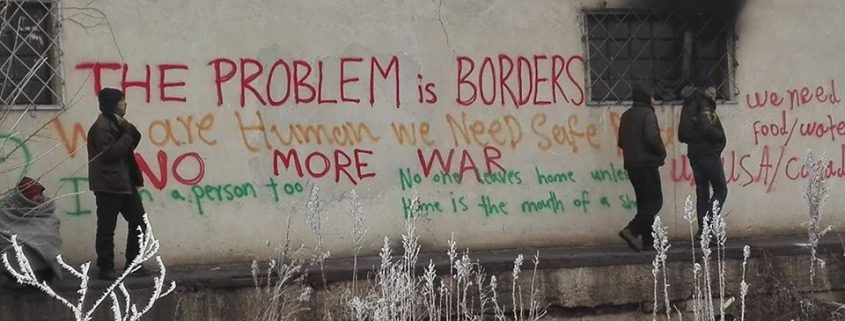 THE PROBLEM is BORDERS
We are Human we Need Safe
NO MORE WAR
I a person too
No one leaves home unless
Home is the mouth of a
we need
food/water
USA/Canada